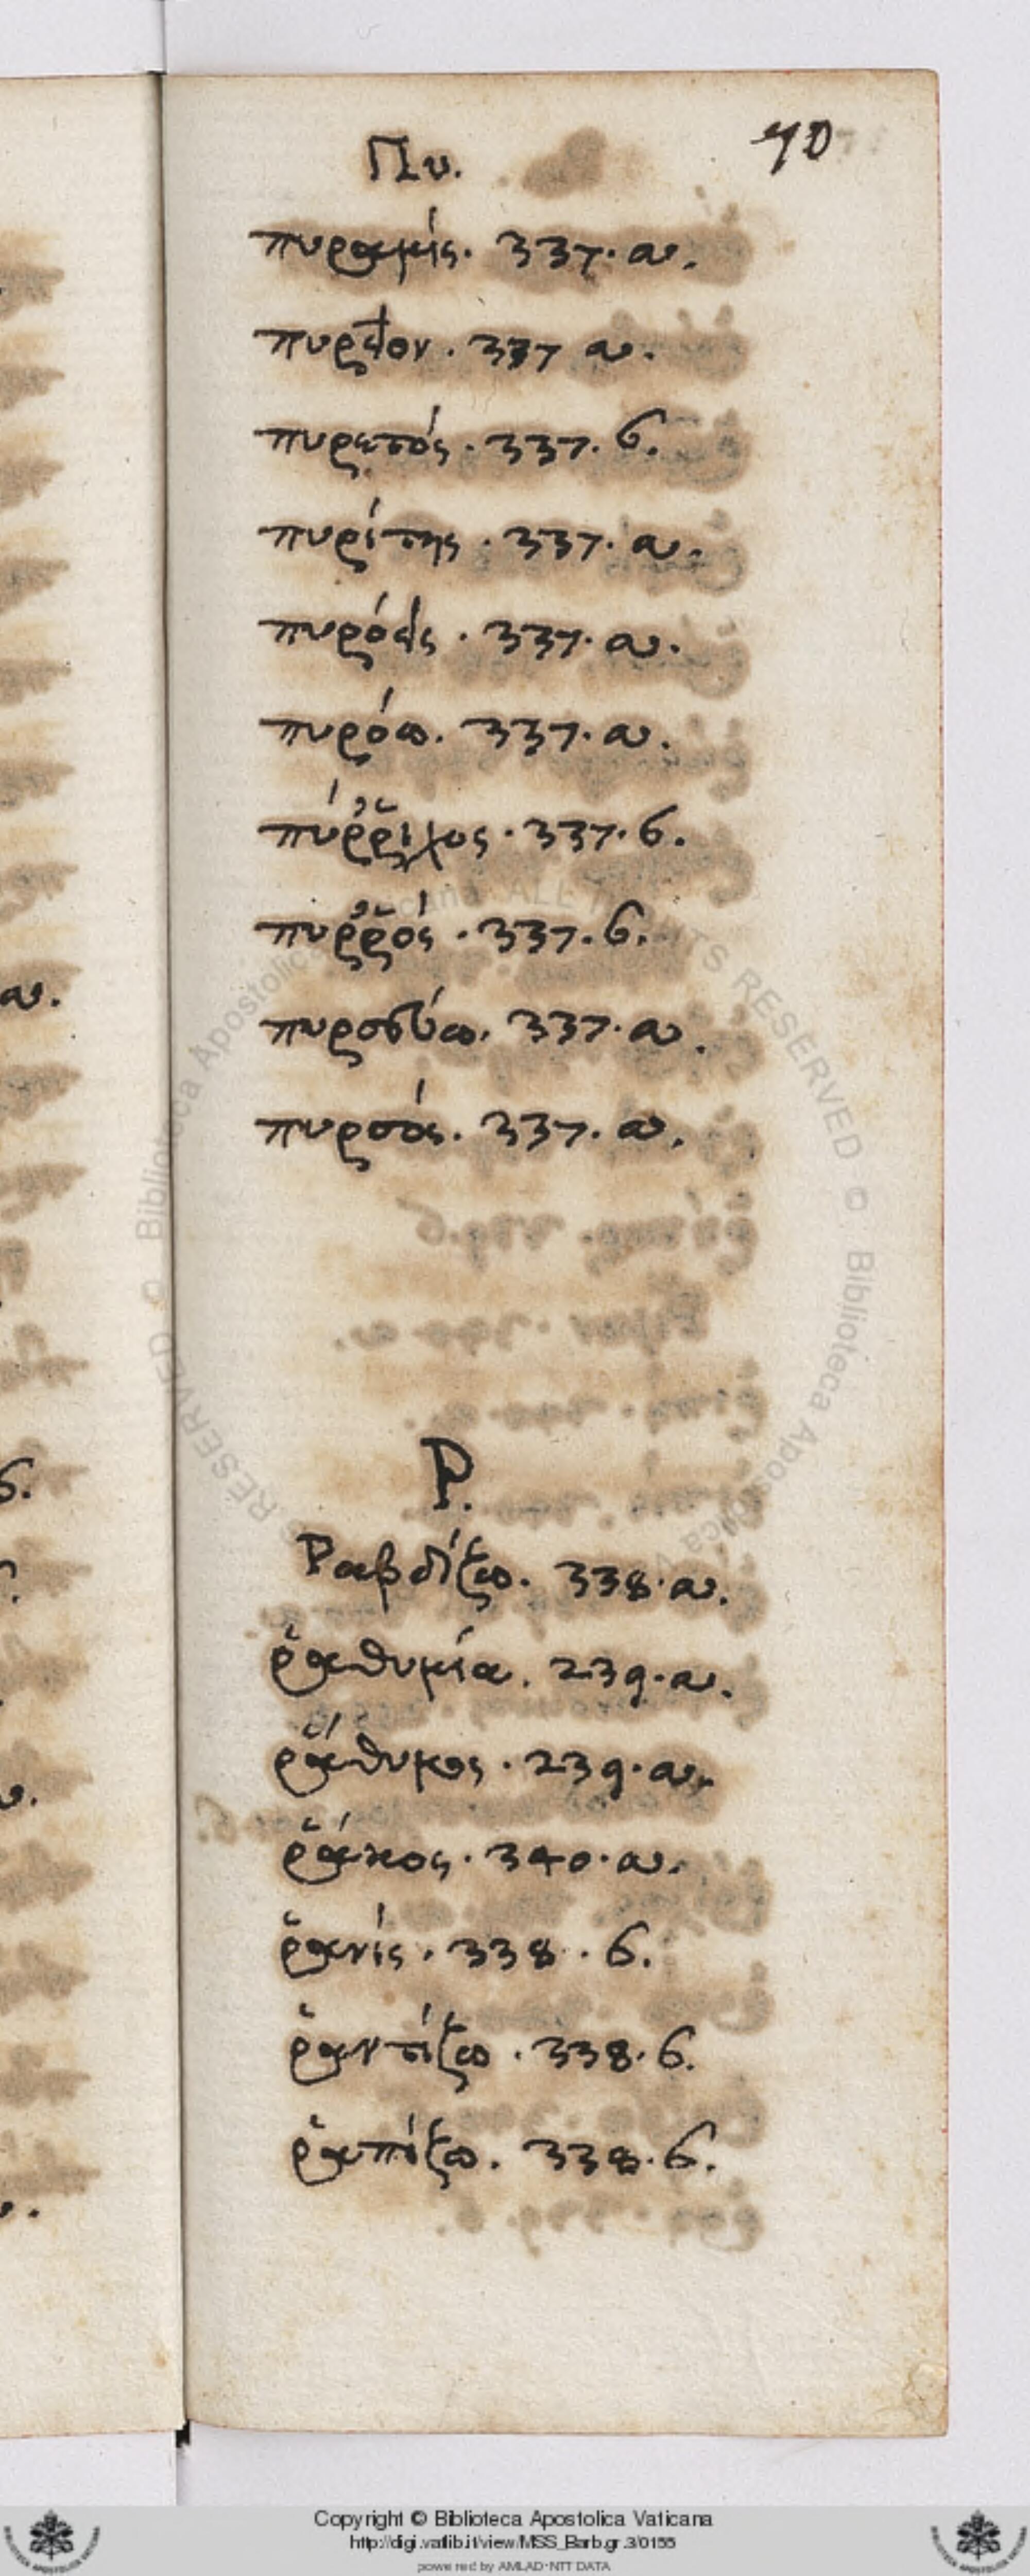 70
Πυ.
πυραμίς. 337. α.
πυρεῖον. 337 α.
πυρετός. 337. β.
πυρίτης. 337. α.
πυρόεις. 337. α.
πυρόω. 337. α.
πύῤῥιχος. 337. β.
πυῤῥός. 337. β.
πυρσεύω. 337. α.
πυρσός. 337. α.
Ρ.
Ραβδίζω. 338. α.
ῥαθυμία. 239. α.
ῥάθυμος. 239. α.
ῥάκος. 340. α.
ῥανίς. 338. β.
ῥαντίζω. 338. β.
ῥαπίζω. 338. β.
Copyright © Biblioteca Apostolica Vaticana
http://digi.vatlib.it/view/MSS_Barb.gr.3/0155
powered by AMLAD-NTT DATA